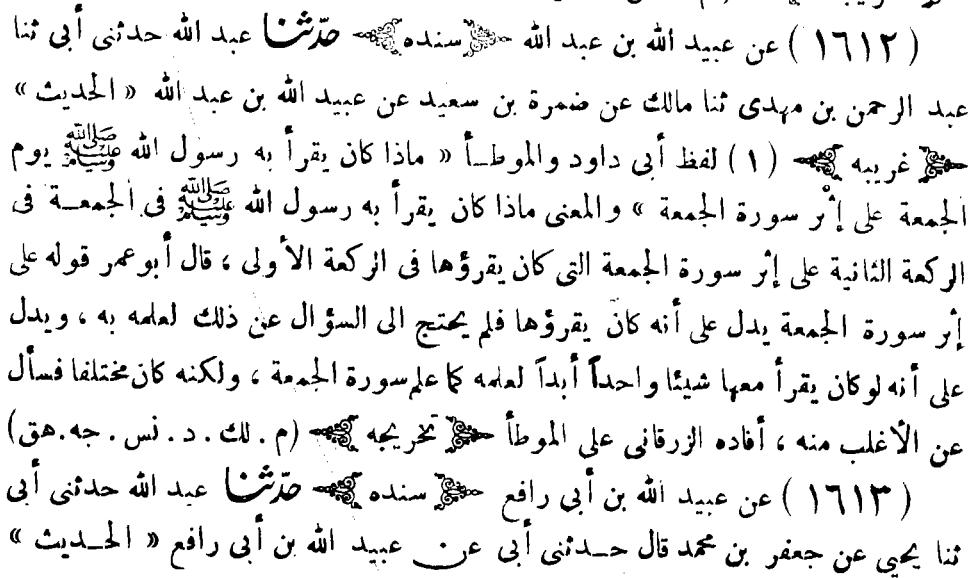 ( ١٦١٢ ) عن عبيد الله بن عبد الله ﴿سنده﴾ حدّثنا عبد الله حدثنى أبى ثنا
عبد الرحمن بن مهدى ثنا مالك عن ضمرة بن سعيد عن عبيد الله بن عبد الله « الحديث »
﴿غريبه﴾ ( ١ ) لفظ أبى داود والموطأ « ماذا كان يقرأ به رسول الله ﷺ يوم
الجمعة على إثر سورة الجمعة » والمعنى ماذا كان يقرأ به رسول الله ﷺ فى الجمعة فى
الركعة الثانية على إثر سورة الجمعة التى كان يقرؤها فى الركعة الأولى ، قال أبو عمر قوله على
إثر سورة الجمعة يدل على أنه كان يقرؤها فلم يحتج الى السؤال عن ذلك لعلمه به ، ويدل
على أنه لو كان يقرأ معها شيئا واحداً أبداً لعلمه كما علم سورة الجمعة ، ولكنه كان مختلفا فسأل
عن الأغلب منه ، أفاده الزرقانى على الموطأ ﴿تخريجه﴾ (م . لك . د . نس . جه . هق)
( ١٦١٣ ) عن عبيد الله بن أبى رافع ﴿سنده﴾ حدّثنا عبد الله حدثنى أبى
ثنا يحيى عن جعفر بن محمد قال حدثنى أبى عن عبيد الله بن أبى رافع « الحديث »